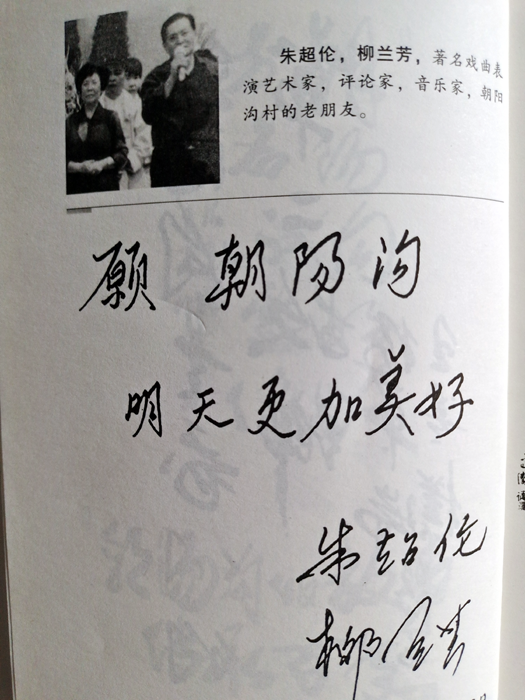 朱超伦，柳兰芳，著名戏曲表
演艺术家，评论家，音乐家，朝阳
沟村的老朋友。
愿 朝阳沟
明天更加美好
朱超伦
柳兰芳